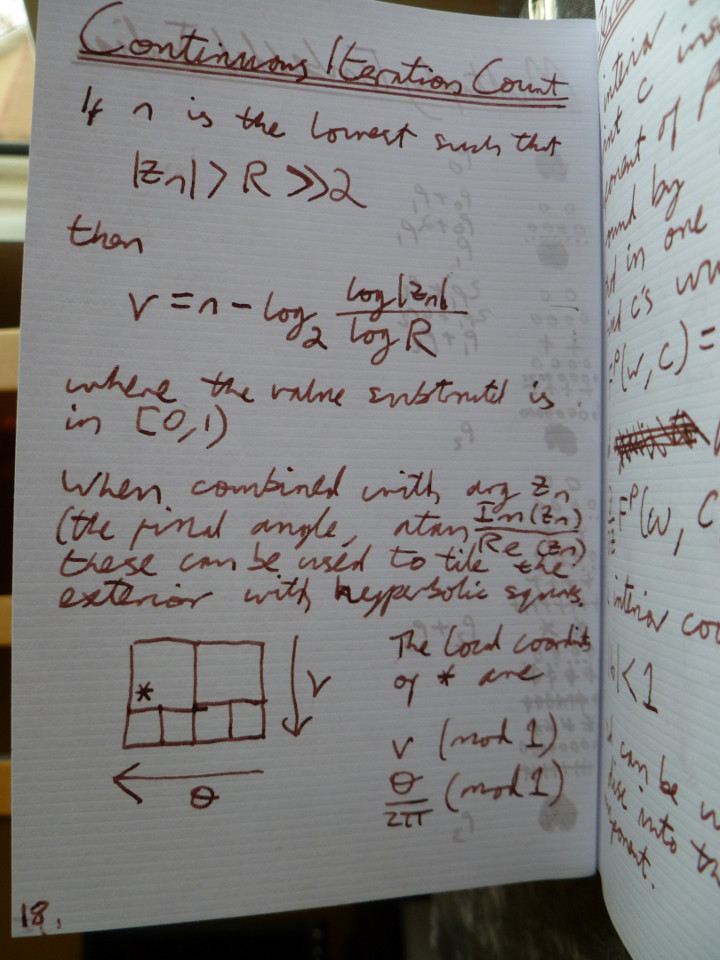 Continuous Iteration Count
If n is the lowest such that
|Zn| > R >> 2
then
v = n - log2 log|Zn| / log R
where the value subtracted is
in [0,1)
When combined with arg Zn
(the final angle, atan Im(Zn) / Re(Zn)
these can be used to tile the
exterior with hyperbolic squares.
*
v
θ
The local coordinates
of * are
v (mod 1)
θ/2π (mod 1)
18.
interior
c
ponent of
by
in one
c's
(w, c) =
F^p(w, c
interior
| < 1
can be
into
ponent.